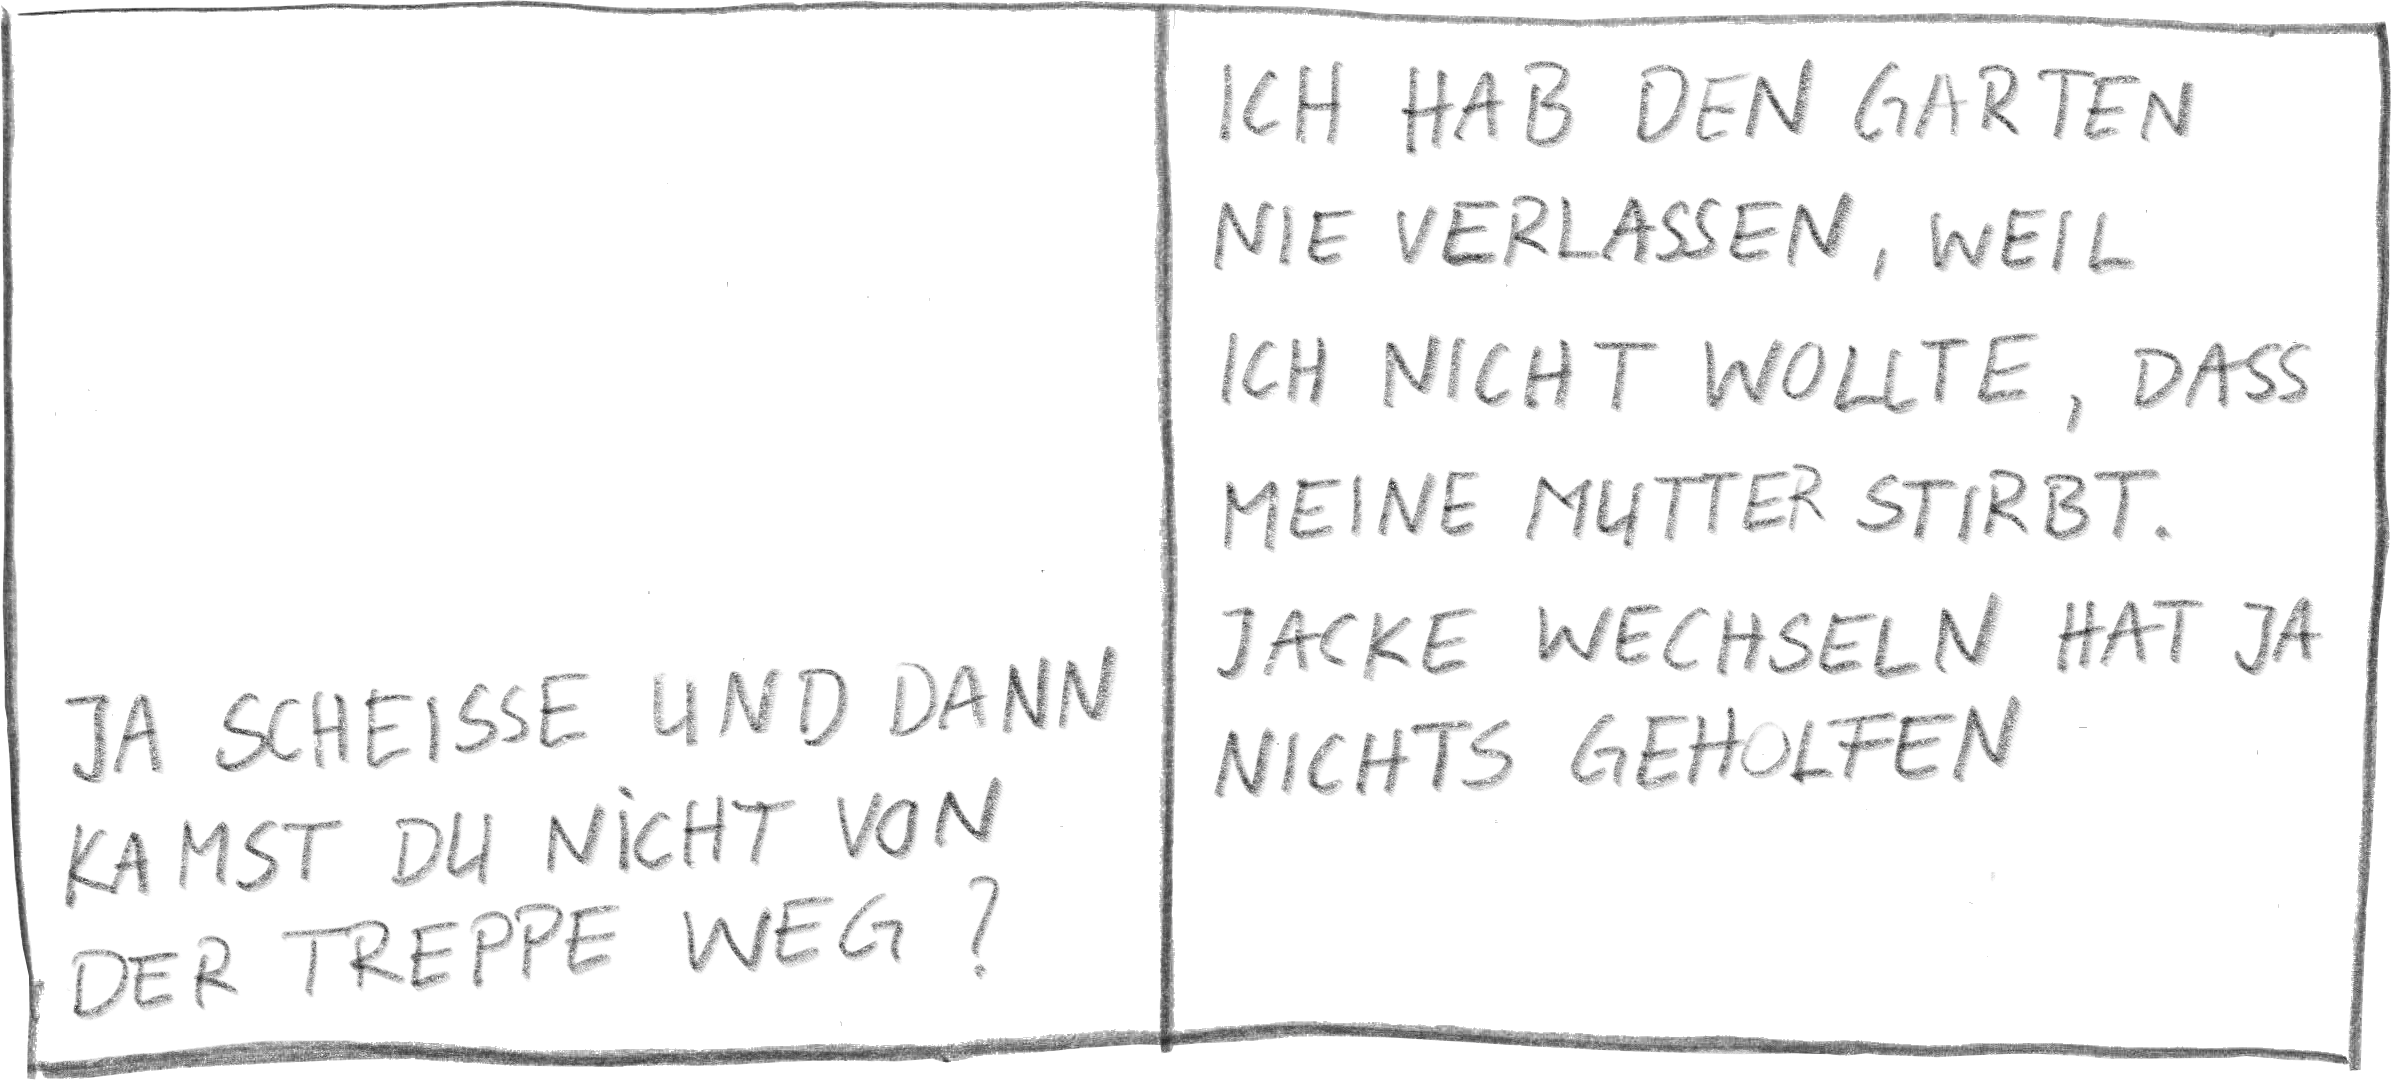 JA SCHEISSE UND DANN
KAMST DU NICHT VON
DER TREPPE WEG?
ICH HAB DEN GARTEN
NIE VERLASSEN, WEIL
ICH NICHT WOLLTE, DASS
MEINE MUTTER STIRBT.
JACKE WECHSELN HAT JA
NICHTS GEHOLFEN